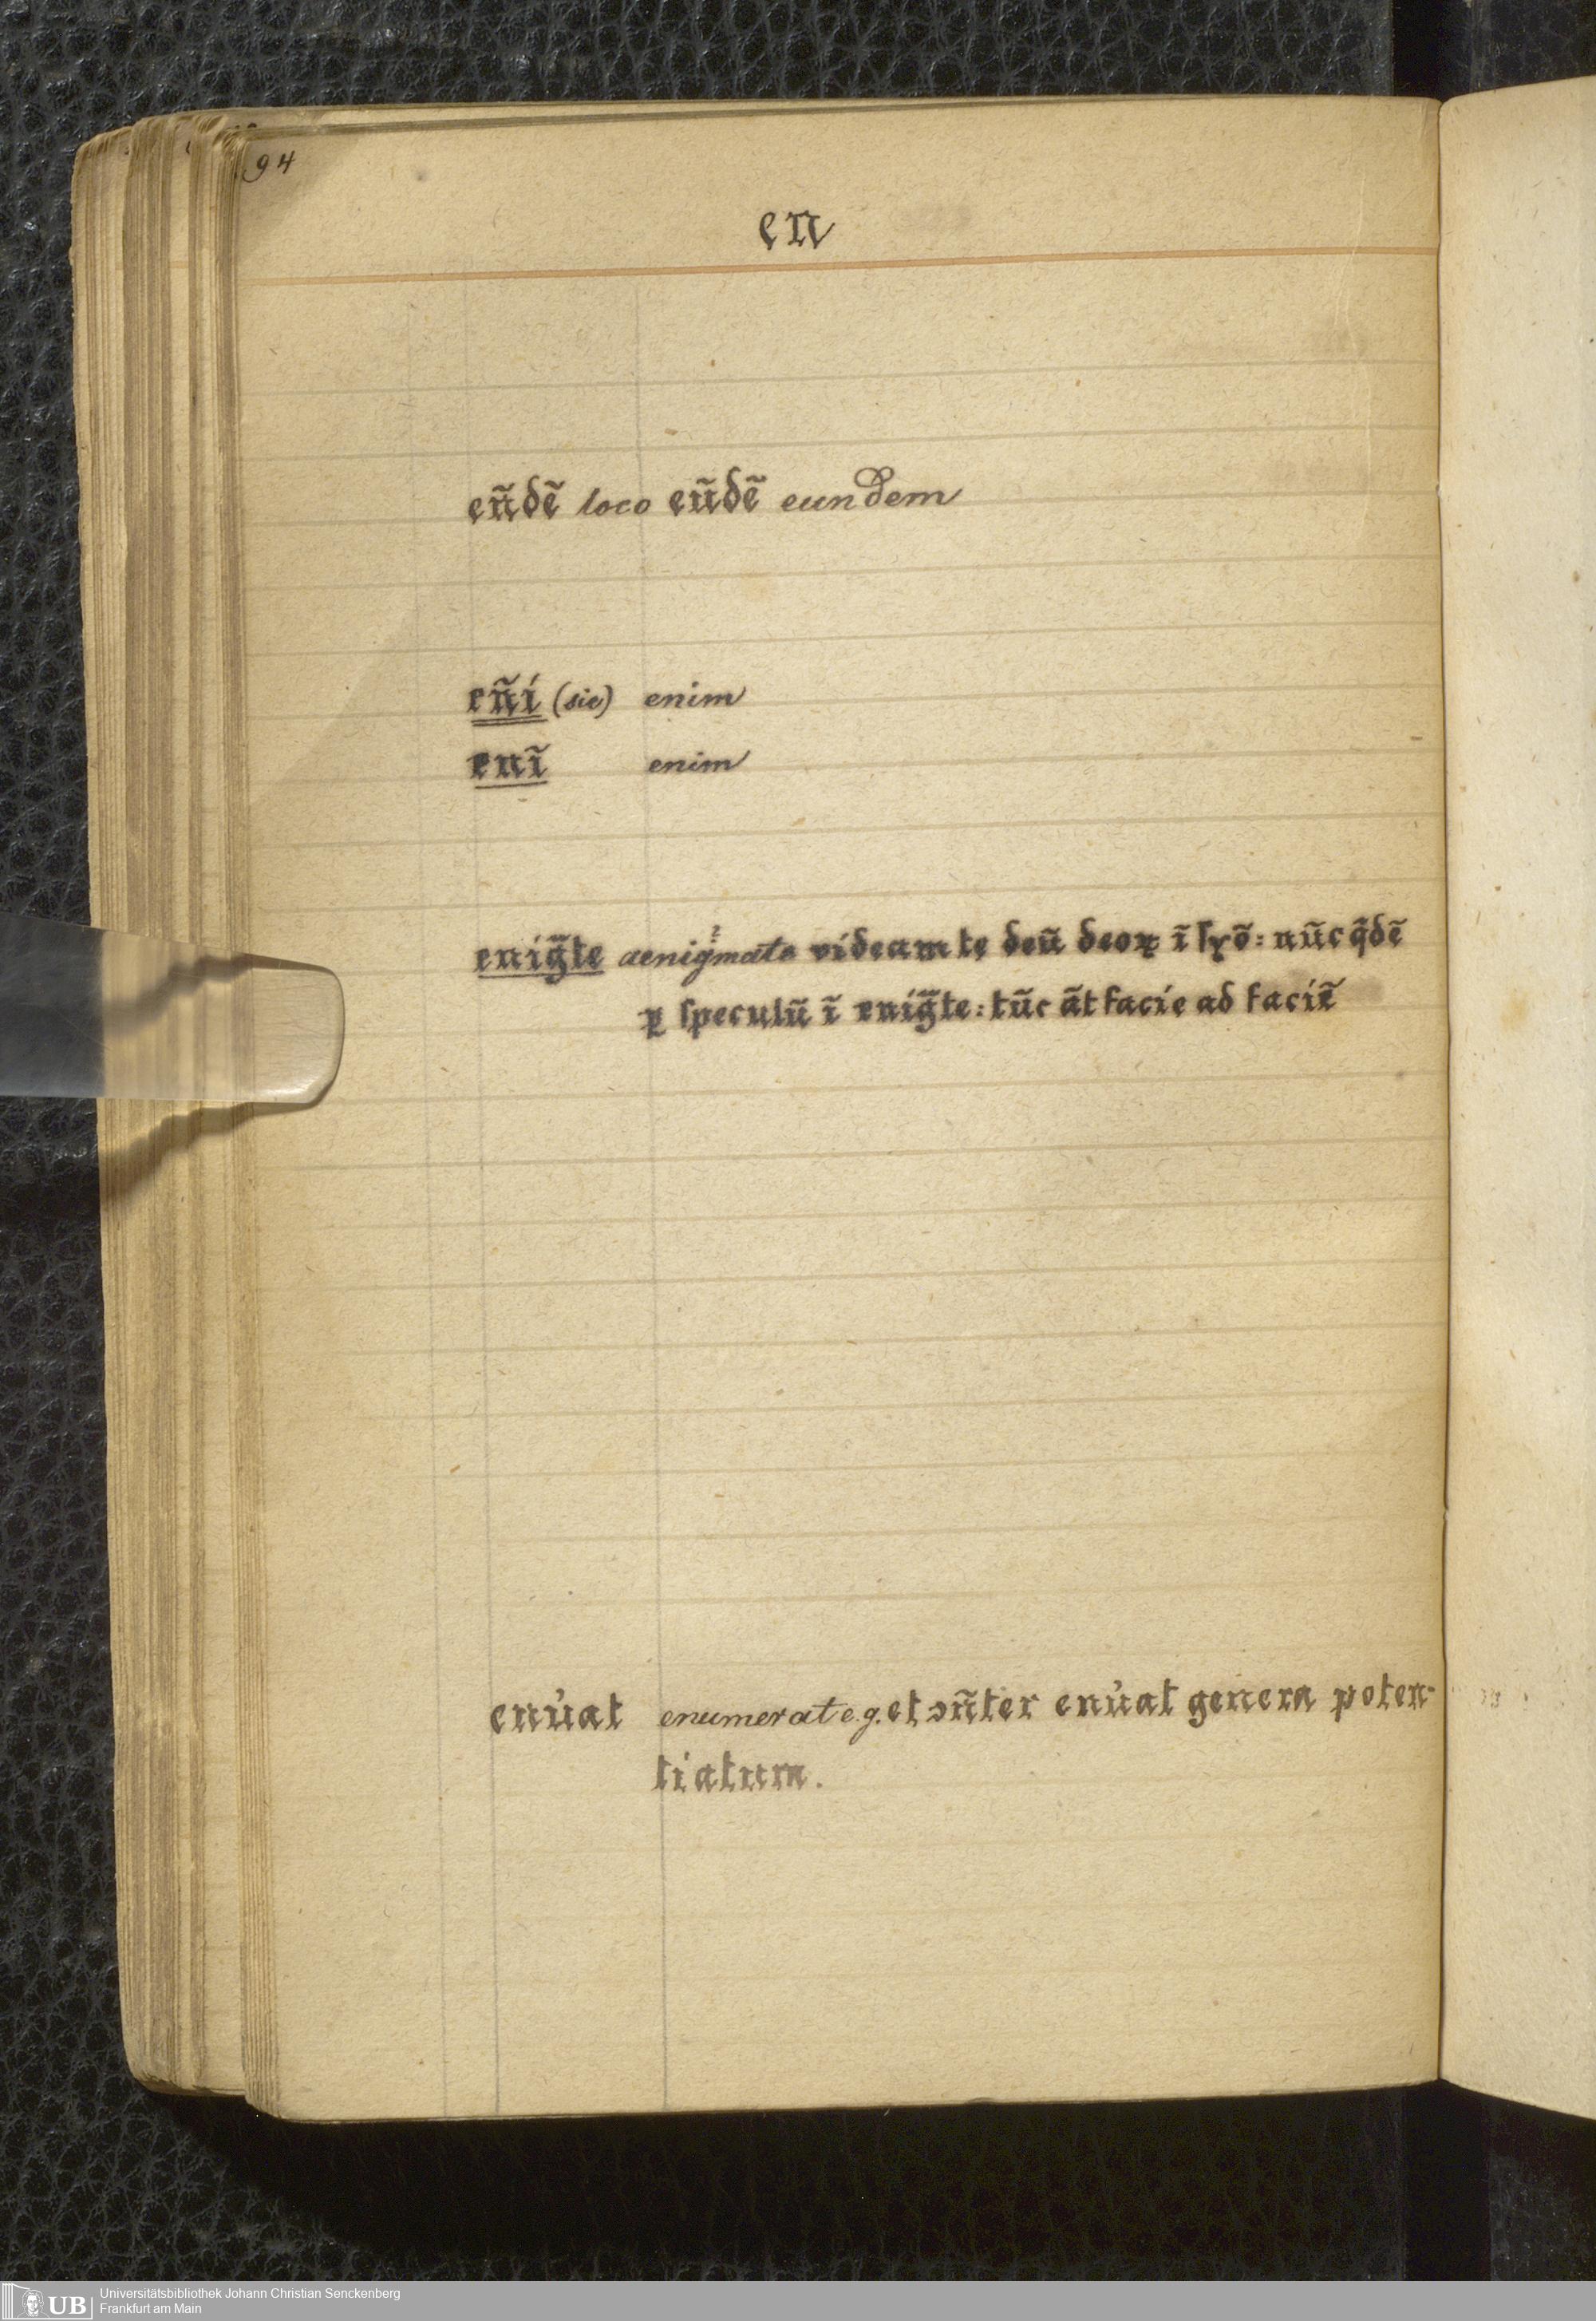 94
en
eñdẽ loco eũdẽ eundem
eñí (sic) enim
enĩ enim
enig̃te aenigmate videam te deũ deoꝝ ĩ ſyõ: nũc q̃dẽ
ꝑ ſpeculũ ĩ enig̃te: tũc ãt facie ad faciẽ
enu̾at enumerat e.g. et ↄñter enu̾at genera poten-
tiatum.
Universitätsbibliothek Johann Christian Senckenberg
UB Frankfurt am Main